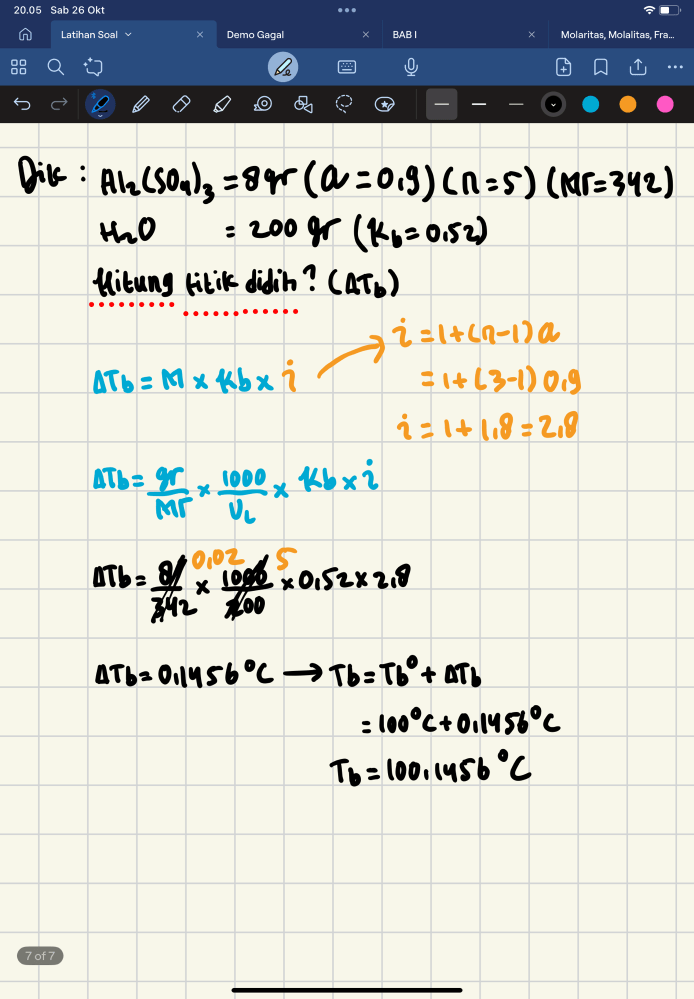 20.05 Sab 26 Okt
Latihan Soal
Demo Gagal
BAB I
Molaritas, Molalitas, Fra...
Dik : Al₂(SO₄)₃ = 8 gr (a = 0,9) (n = 5) (Mr = 342)
H₂O = 200 gr (Kb = 0,52)
Hitung titik didih? (ΔTb)
i = 1 + (n-1) a
ΔTb = M x Kb x i
= 1 + (3-1) 0,9
i = 1 + 1,8 = 2,8
ΔTb = gr/Mr x 1000/VL x Kb x i
0,02 5
ΔTb = 8/342 x 1000/200 x 0,52 x 2,8
ΔTb = 0,1456°C → Tb = Tb° + ΔTb
= 100°C + 0,1456°C
Tb = 100,1456°C
7 of 7